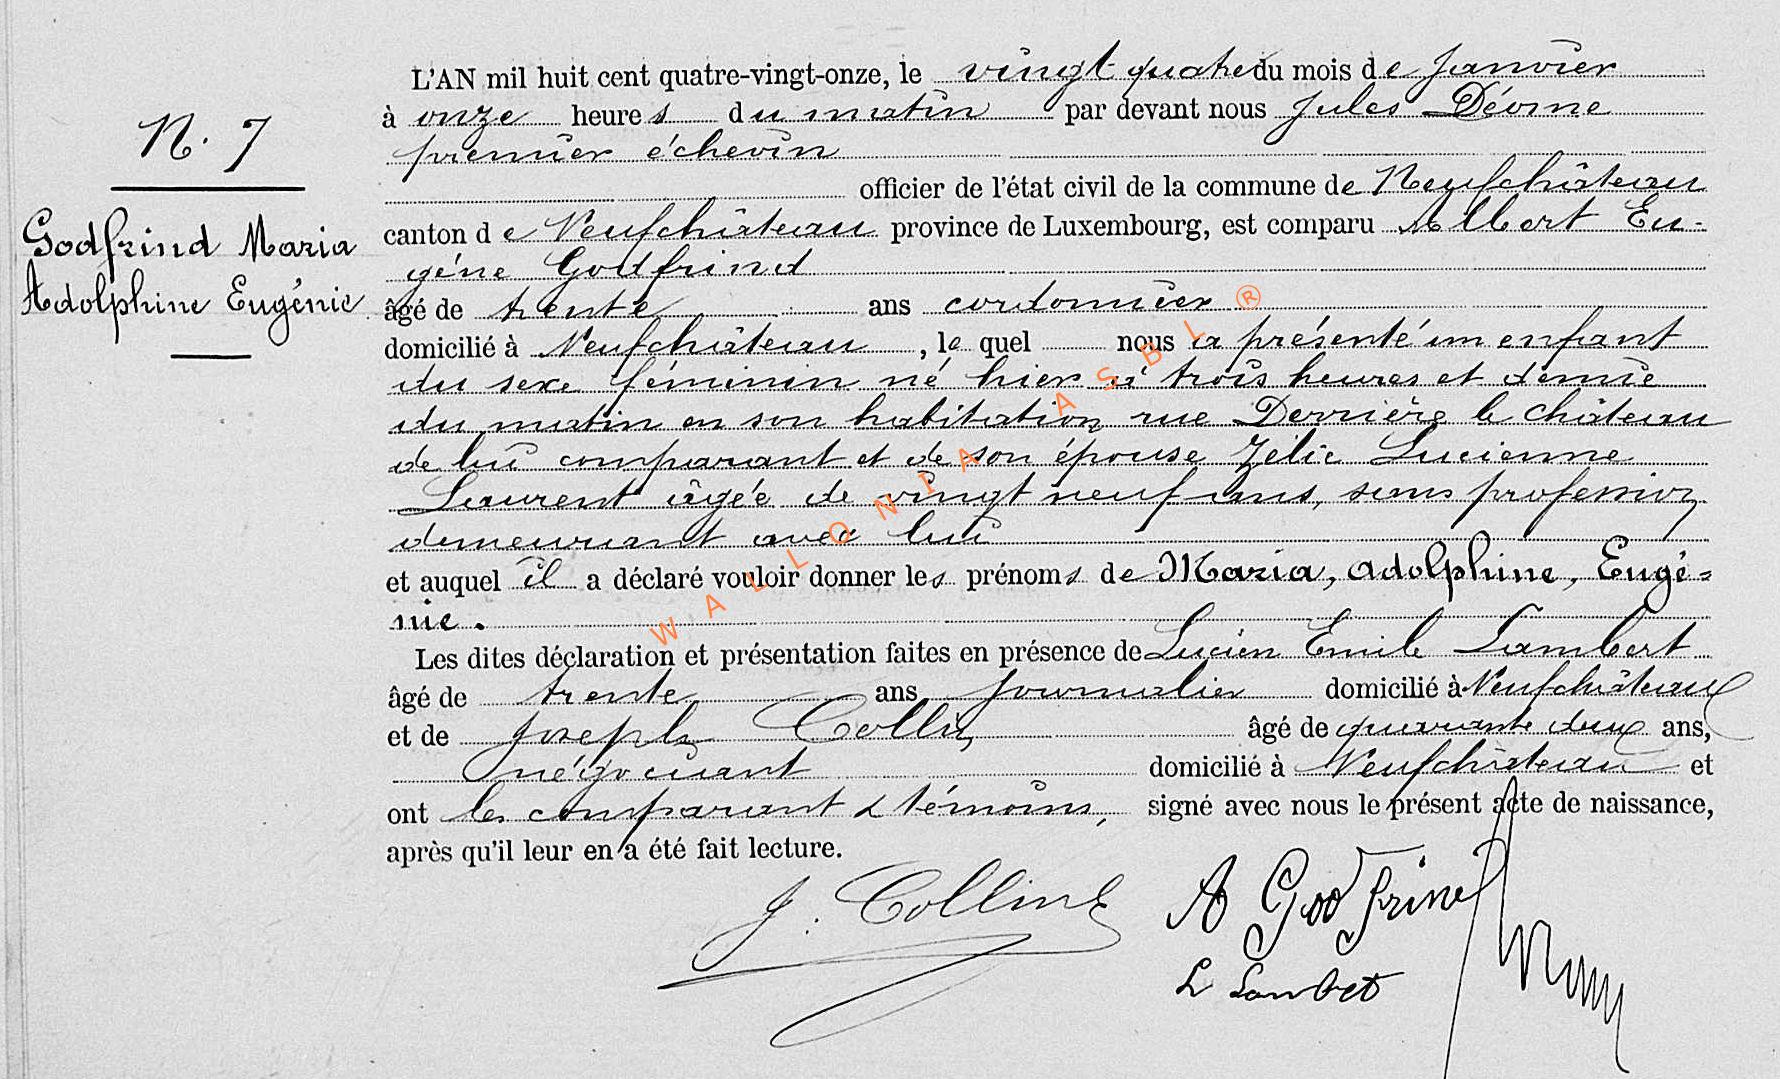 N. 7
Godfrind Maria
Adolphine Eugénie
L'AN mil huit cent quatre-vingt-onze, le vingt quatre du mois de Janvier
à onze heures du matin par devant nous Jules Déome
premier échevin
officier de l'état civil de la commune de Neufchâteau
canton de Neufchâteau province de Luxembourg, est comparu Albert Eu-
géne Godfrind
âgé de trente ans cordonnier
domicilié à Neufchâteau, le quel nous a présenté un enfant
du sexe féminin né hier à trois heures et demie
du matin en son habitation rue Derrière le château
de lui comparant et de son épouse Zélie Lucienne
Laurent âgée de vingt neuf ans, sans profession
demeurant avec lui
et auquel il a déclaré vouloir donner les prénoms de Maria, Adolphine, Eugé=
nie.
Les dites déclaration et présentation faites en présence de Lucien Emile Lambert
âgé de trente ans journalier domicilié à Neufchâteau
et de Joseph Collin âgé de quarante deux ans,
négociant domicilié à Neufchâteau et
ont les comparant & témoins, signé avec nous le présent acte de naissance,
après qu'il leur en a été fait lecture.
J. Collin
A Godfrind
L Lambert
WALLONIA ASBL ®